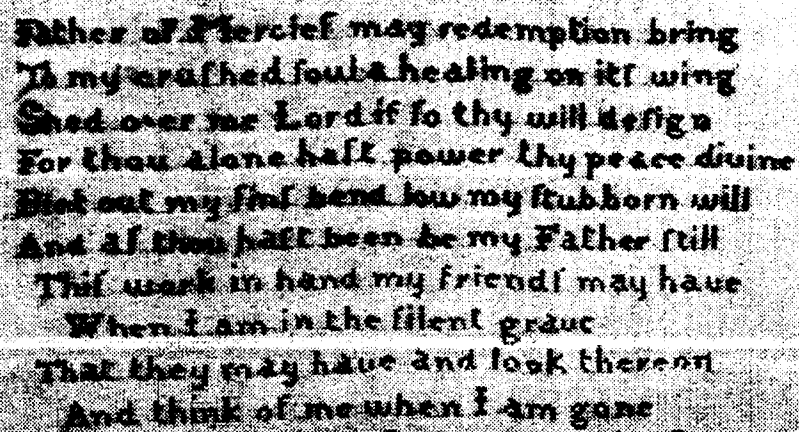 Father of Mercieſ may redemption bring
To my cruſhed ſoul a healing on itſ wing
Shed over me Lord if ſo thy will deſign
For thou alone haſt power thy peace divine
Blot out my ſinſ bend low my ſtubborn will
And aſ thou haſt been be my Father ſtill
Thiſ work in hand my friendſ may have
When I am in the ſilent grave
That they may have and look thereon
And think of me when I am gone